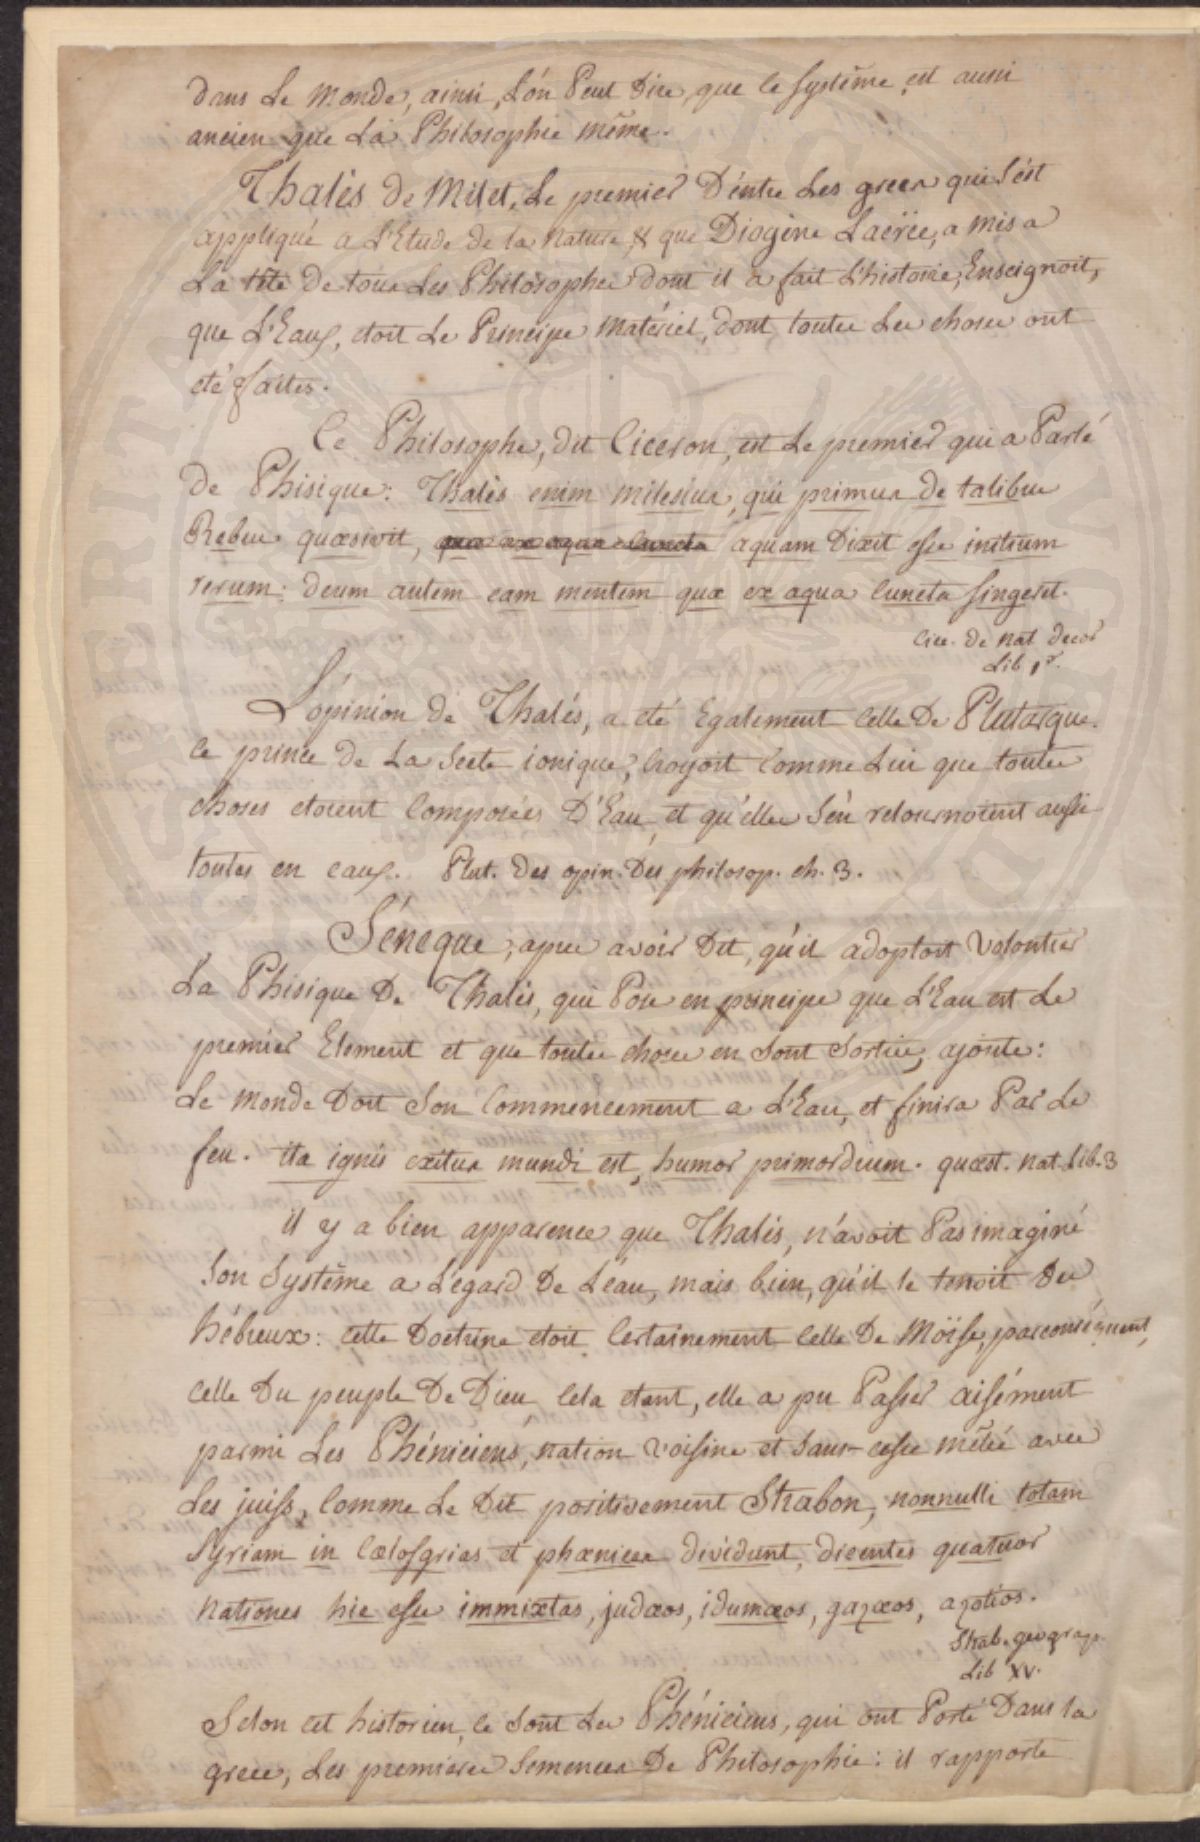 dans Le Monde, ainsi, L'ón Peut Dire, que le Systême, est aussi
ancien que La Philosophie même.
Thalès de Milet, Le premier D'éntre Les grecs qui S'ést
appliqué a L'Etude de la Nature, & que Diogène Laërce, a mis a
La tête De tous Les Philosophes Dont il a fait L'histoire, Enseignoit,
que L'Eau, etoit Le Principe Matériel, dont toutes Les choses ont
eté faites.
Ce Philosophe, dit Ciceron, est Le premier qui a Parlé
de Phisique: Thalès enim milesius, qui primus de talibus
Rebus quæsivit, quæ ex aqua cuncta aquam Dixit esse initium
rerum: deum autem eam mentem quæ ex aqua Cuncta fingeret.
Cice. de Nat deor
Lib 1r.
L'ópinion de Thalés, a eté Egalement Celle De Plutarque.
Ce prince de La Secte ionique, Croyoit Comme Lui que toutes
choses etoient Composées D'Eau, et qu'elles S'én retournoient aussi
toutes en eau. Plut. Des opin. Des philosop. ch. 3.
Sénèque, apres avoir Dit, qu'il adoptoit Volontier
La Phisique De Thalès, qui Pose en principe que L'Eau est Le
premier Element et que toutes choses en Sont Sorties, ajoute:
Le Monde Doit Son Commencement a L'Eau, et finira Par Le
feu. ita ignis exitus mundi est, humor primordium. quæst. nat. Lib. 3
il y a bien apparence que Thalès, n'avoit Pas imaginé
Son Systême a L'égard De L'éau, mais bien, qu'il le tenoit Des
hébreux: cette Doctrine etoit Certainement Celle De Moïse, parconséquent,
Celle Du peuple De Dieu Cela etant, elle a pu Passer aisément
parmi Les Phéniciens, nation voisine et Sans-cesse mêlée avec
Les juifs, Comme Le Dit positivement Strabon, nonnulli totam
Syriam in Cælosyrias et phænices dividunt, dicentes quatuor
Nationes hic esse immixtas, judæos, idumæos, gazæos, azotios.
Strab. geograp.
Lib XV.
Selon cet historien, ce Sont Les Phéniciens, qui ont Porté Dans la
grece, Les premieres Semences De Philosophie: il rapporte